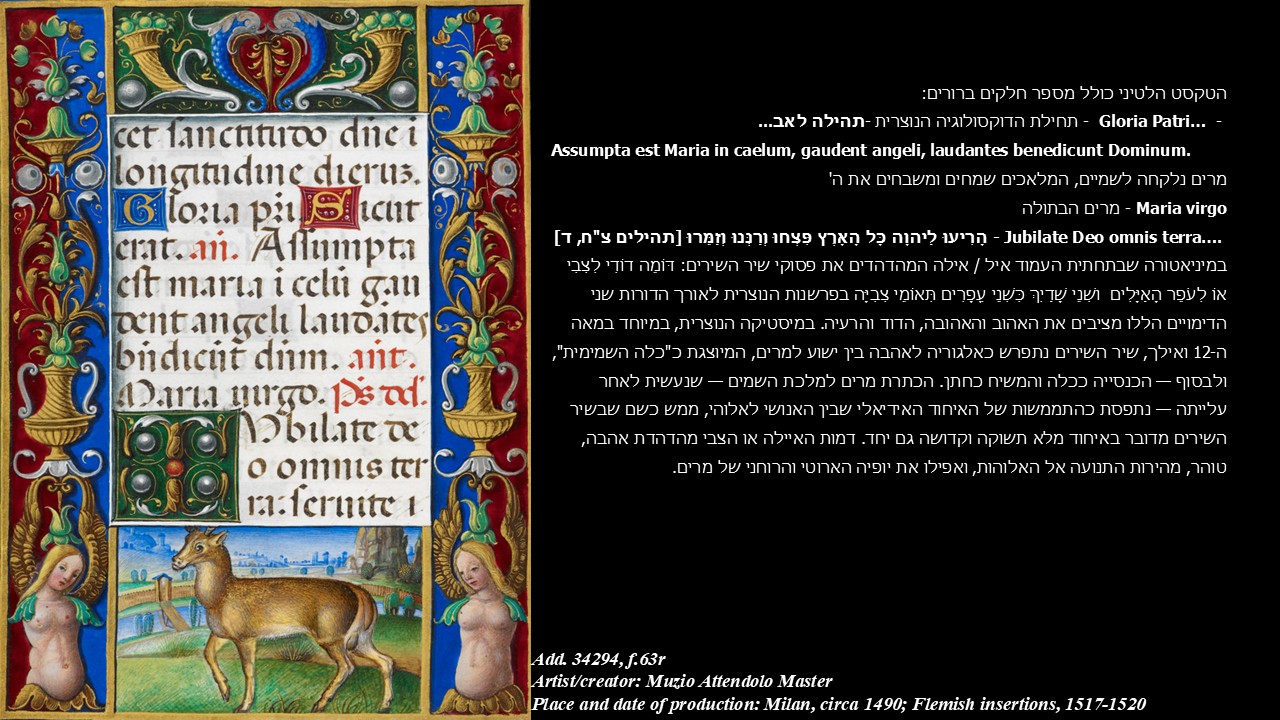 cet sanctitudo dñe i
longitudine dieruz.
Gloria pr̃i. Sicut
erat. añ. Assumpta
est maria i celũ gau
dent angeli laudãtes
bñdicũt dñm. ant.
Maria uirgo. p̃s del.
IVbilate de
o omnis ter
ra: seruite i
הטקסט הלטיני כולל מספר חלקים ברורים:
- Gloria Patri... - תחילת הדוקסולוגיה הנוצרית -תהילה לאב...
Assumpta est Maria in caelum, gaudent angeli, laudantes benedicunt Dominum.
מרים נלקחה לשמיים, המלאכים שמחים ומשבחים את ה'
Maria virgo - מרים הבתולה
Jubilate Deo omnis terra.... - הָרִיעוּ לַיהוָה כָּל הָאָרֶץ פִּצְחוּ וְרַנְּנוּ וְזַמֵּרוּ [תהילים צ"ח, ד]
במיניאטורה שבתחתית העמוד איל / אילה המהדהדים את פסוקי שיר השירים: דּוֹמֶה דוֹדִי לִצְבִי
אוֹ לְעֹפֶר הָאַיָּלִים וּשְׁנֵי שָׁדַיִךְ כִּשְׁנֵי עֳפָרִים תְּאוֹמֵי צְבִיָּה בפרשנות הנוצרית לאורך הדורות שני
הדימויים הללו מציבים את האהוב והאהובה, הדוד והרעיה. במיסטיקה הנוצרית, במיוחד במאה
ה-12 ואילך, שיר השירים נתפרש כאלגוריה לאהבה בין ישוע למרים, המיוצגת כ"כלה השמימית",
ולבסוף — הכנסייה ככלה והמשיח כחתן. הכתרת מרים למלכת השמים — שנעשית לאחר
עלייתה — נתפסת כהתממשות של האיחוד האידיאלי שבין האנושי לאלוהי, ממש כשם שבשיר
השירים מדובר באיחוד מלא תשוקה וקדושה גם יחד. דמות האיילה או הצבי מהדהדת אהבה,
טוהר, מהירות התנועה אל האלוהות, ואפילו את יופיה הארוטי והרוחני של מרים.
Add. 34294, f.63r
Artist/creator: Muzio Attendolo Master
Place and date of production: Milan, circa 1490; Flemish insertions, 1517-1520